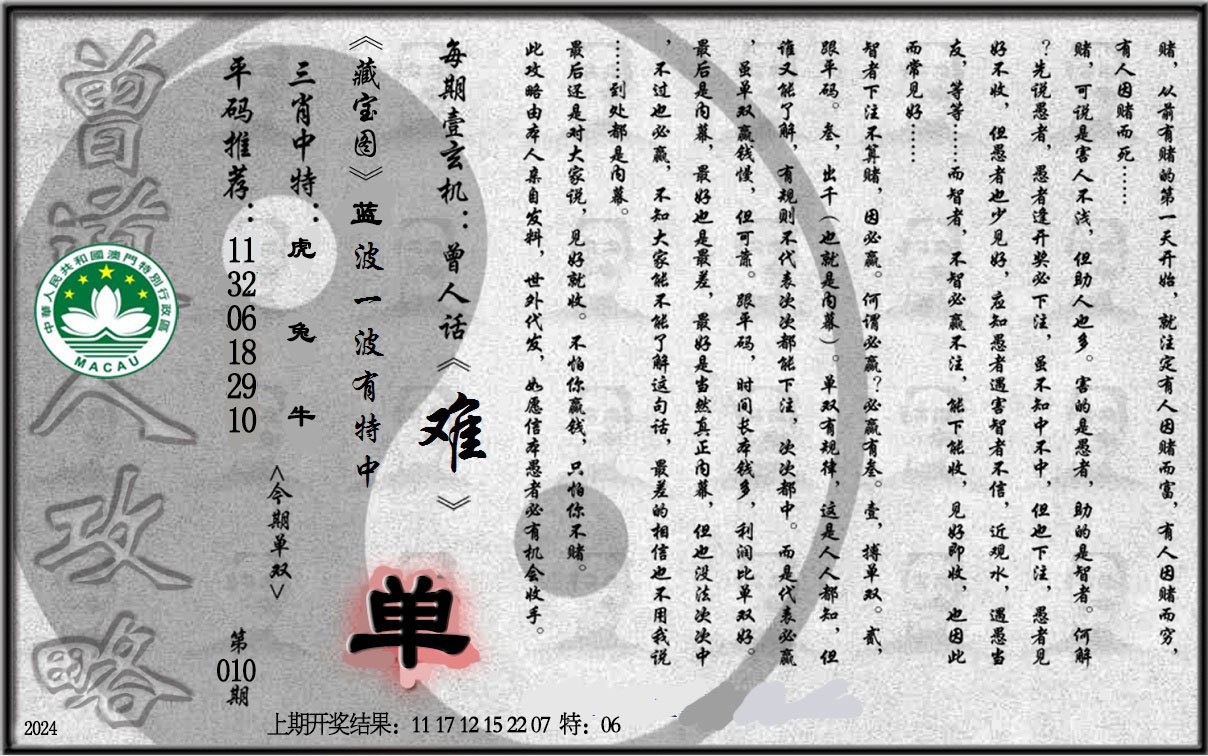 赌,从前有赌的第一天开始,就注定有人因赌而富,有人因赌而穷,
有人因赌而死……
赌,可说是害人不浅,但助人也多。害的是愚者,助的是智者。何解
?先说愚者,愚者逢开奖必下注,虽不知中不中,但也下注,愚者见
好不收,但愚者也少见好,应知愚者遇害智者不信,近观水,遇愚当
友,等等……而智者,不智必赢不注,能下能收,见好即收,也因此
而常见好……
智者下注不算赌,因必赢。何谓必赢?必赢有叁。壹,搏单双。贰,
跟平码。叁,出千(也就是内幕)。单双有规律,这是人人都知,但
谁又能了解,有规则不代表次次都能下注,次次都中。而是代表必赢
,虽单双赢钱慢,但可靠。跟平码,时间长本钱多,利润比单双好。
最后是内幕,最好也是最差,最好是当然真正内幕,但也没法次次中
,不过也必赢,不知大家能不能了解这句话,最差的相信也不用我说
……到处都是内幕。
最后还是对大家说,见好就收。不怕你赢钱,只怕你不赌。
此攻略由本人亲自发料,世外代发,如愿信本愚者必有机会收手。
每期壹玄机:曾人话《难》
《藏宝图》蓝波一波有特中
单
三肖中特:虎 兔 牛
<今期单双>
平码推荐:11 32 06 18 29 10
第010期
曾道人攻略
中華人民共和國澳門特別行政區
MACAU
2024
上期开奖结果:11 17 12 15 22 07 特:06